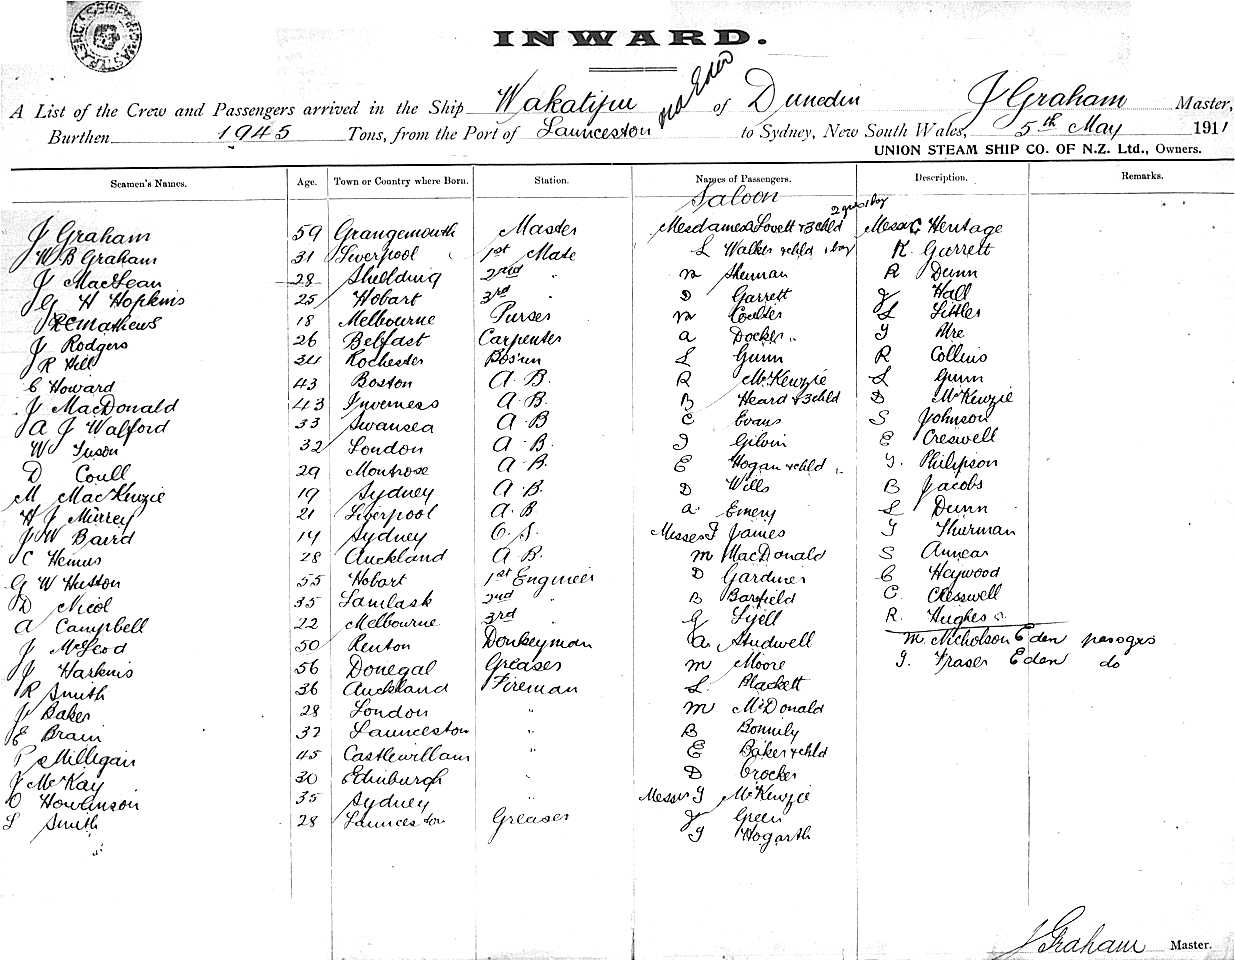 INWARD.
A List of the Crew and Passengers arrived in the Ship Wakatipu via Eden of Dunedin J Graham Master,
Burthen 1945 Tons, from the Port of Launceston to Sydney, New South Wales, 5th May 1911
UNION STEAM SHIP CO. OF N.Z. Ltd., Owners.
Seamen's Names. Age. Town or Country where Born. Station. Names of Passengers. Description. Remarks.
Saloon
J Graham 59 Grangemouth Master Mesdames Lovett & 3 chld Messrs C Heritage
W B Graham 31 Liverpool 1st Mate L Walker & chld boy K. Garrett
J MacLean 28 2nd " M Sherman R Dunn
G H Hopkins 25 Hobart 3rd " D Garrett J Hall
R E Mathews 18 Melbourne Purser M Coulter L Littler
J Rodgers 26 Belfast Carpenter A Docker " T
R Hill 34 Rochester Bos'un L Gunn R Collins
C Howard 43 Boston A. B. R McKenzie L Gunn
J MacDonald 43 Inverness A. B. B Heard & 3 chld D McKenzie
A J Walford 33 Swansea A. B C Evans S Johnson
W Tuson 32 London A. B. J Gilvin E Creswell
D Coull 29 Montrose A B. E Hogan & chld " T. Philipson
M MacKenzie 19 Sydney A. B. D Wills B Jacobs
H J Murrey 21 Liverpool A. B A Emery L Dunn
J W Baird 14 Sydney O. S. Messrs T James T Thurman
C Hemus 28 Auckland A B. M MacDonald S Annear
G W Huston 55 Hobart 1st Engineer D Gardner C Haywood
D Nicol 35 Lamlash 2nd " B Barfield C. Cresswell
A Campbell 22 Melbourne 3rd " G Lyell R. Hughes
J McLeod 50 Renton Donkeyman A. Studwell M Nicholson Eden passgrs
J Harkins 56 Donegal Greaser M Moore J. Fraser Eden do
R Smith 36 Auckland Fireman L. Blackett
J Baker 28 London " M McDonald
E Brain 32 Launceston " B Bonnily
P S Milligan 45 Castlewillam " E Baker & chld
J McKay 30 Edinburgh " D Crocker
O Howlinson 35 Sydney " Messrs T McKenzie
L Smith 28 Launceston Greaser J Green
T Hogarth
J Graham Master.